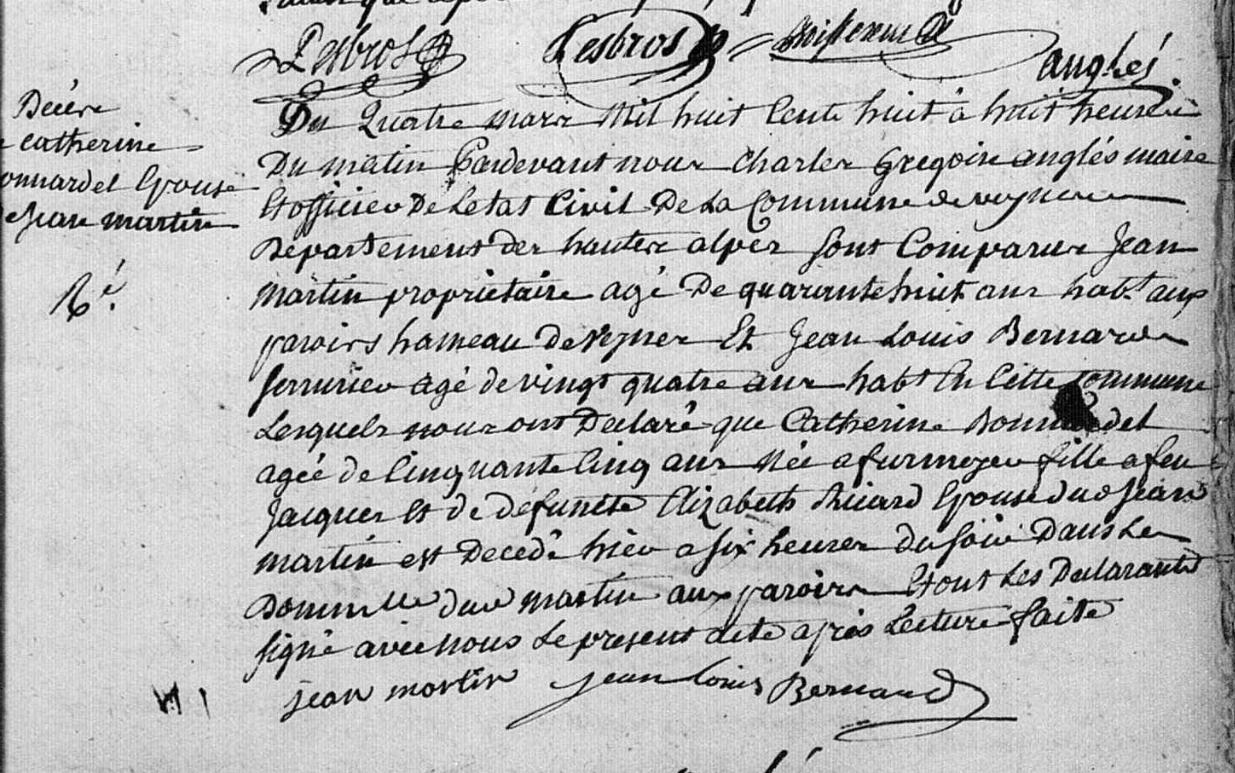 Lesbros Lesbros
anglés
Décès
catherine
onnardel Epouse
de jean martin
Du Quatre mars Mil huit Cent huit à huit heures
Du matin Pardevant nous Charles Gregoire anglés maire
Et officier De Létat Civil De La Commune de veynes
Département des hautes alpes sont Comparus Jean
Martin propriétaire agé De quarante huit ans habt. aux
paroirs hameau de Veynes Et Jean Louis Bernard
serrurier agé de vingt quatre ans habt En Cette Commune
Lesquels nous ont Déclaré que Catherine Bonnardel
agée de Cinquante Cinq ans Née a furmeyer fille a feu
Jacques Et de défunte Elizabeth Epouse dud Jean
martin est Décédé hier a six heures du soir Dans Le
Domicille dud martin aux paroirs Et ont Les Déclarants
signé avec nous Le présent acte après Lecture faite
jean martin jean louis Bernard